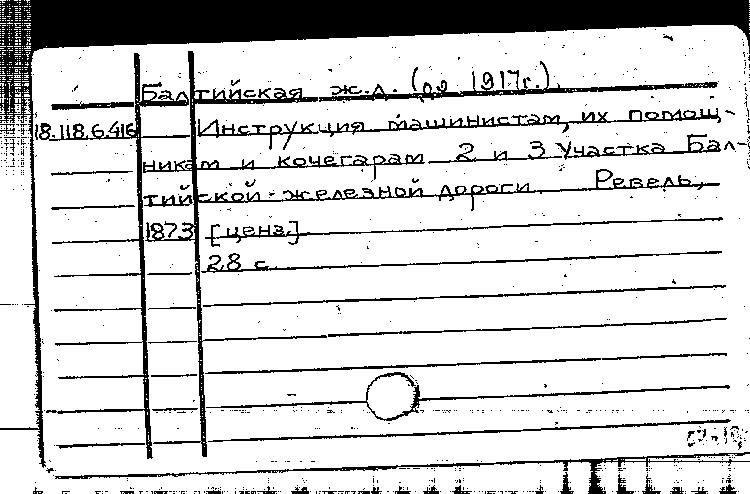 Балтийская ж.д. (до 1917г.).
18.118.6.416 Инструкция машинистам, их помощ-
никам и кочегарам 2 и 3 Участка Бал-
тийской железной дороги. Ревель,
1873 [ценз.]
28 с.